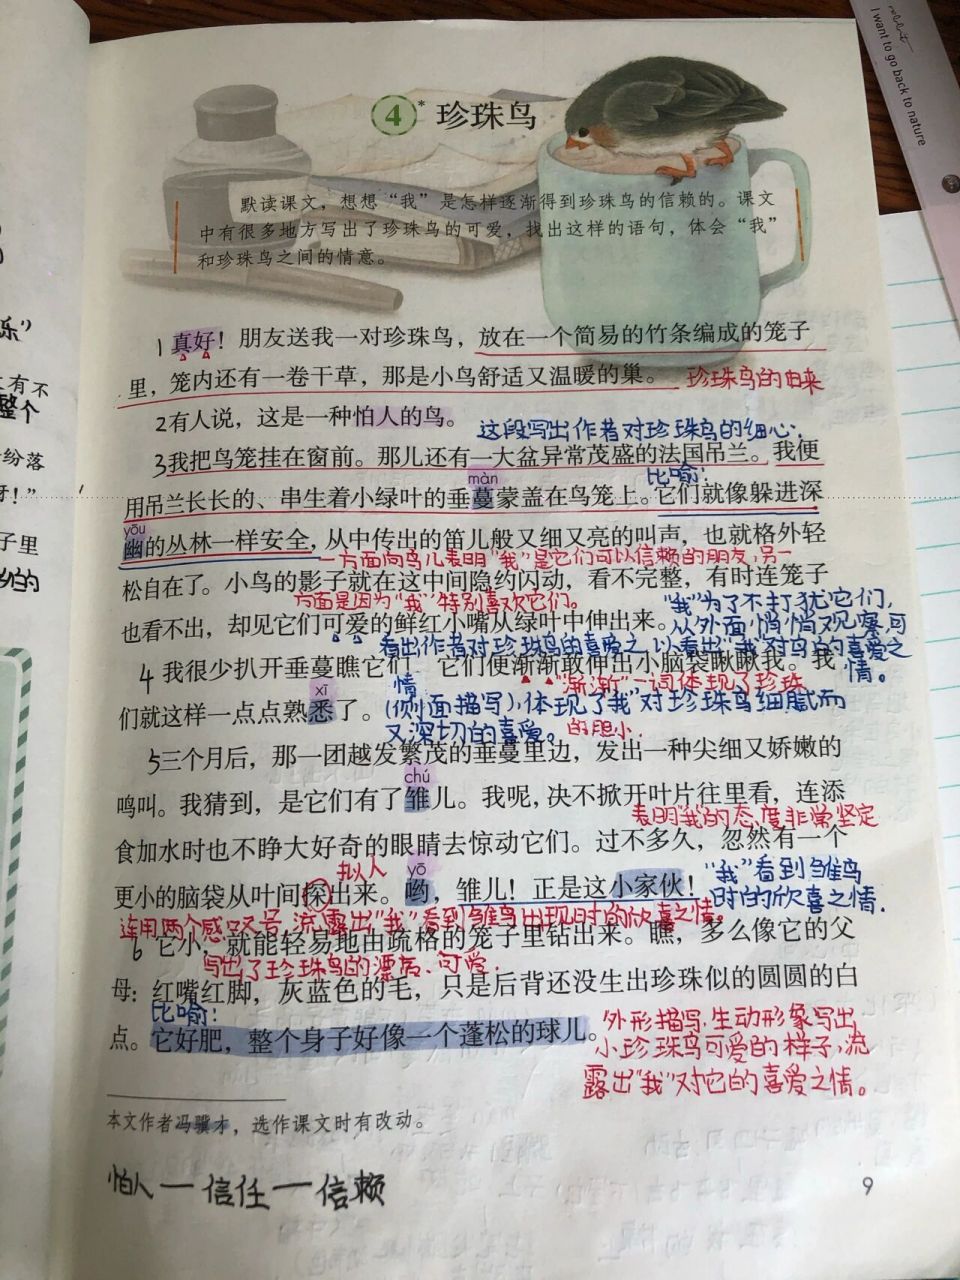 I want to go back to nature
4* 珍珠鸟
默读课文，想想“我”是怎样逐渐得到珍珠鸟的信赖的。课文
中有很多地方写出了珍珠鸟的可爱，找出这样的语句，体会“我”
和珍珠鸟之间的情意。
1 真好！朋友送我一对珍珠鸟，放在一个简易的竹条编成的笼子
里，笼内还有一卷干草，那是小鸟舒适又温暖的巢。 珍珠鸟的由来
2有人说，这是一种怕人的鸟。
这段写出作者对珍珠鸟的细心。
3我把鸟笼挂在窗前。那儿还有一大盆异常茂盛的法国吊兰。我便
màn 比喻：
用吊兰长长的、串生着小绿叶的垂蔓蒙盖在鸟笼上。它们就像躲进深
yōu
幽的丛林一样安全，从中传出的笛儿般又细又亮的叫声，也就格外轻
一方面向鸟儿表明“我”是它们可以信赖的朋友，另一
松自在了。小鸟的影子就在这中间隐约闪动，看不完整，有时连笼子
方面是因为“我”特别喜欢它们。 “我”为了不打扰它们，
也看不出，却见它们可爱的鲜红小嘴从绿叶中伸出来。从外面悄悄观察，可
看出作者对珍珠鸟的喜爱之 以看出“我”对鸟的喜爱之
4 我很少扒开垂蔓瞧它们，它们便渐渐敢伸出小脑袋瞅瞅我。我 情。
xī 情 “渐渐”一词体现了珍珠
们就这样一点点熟悉了。（侧面描写），体现了“我”对珍珠鸟细腻而
又深切的喜爱。 的胆小.
5三个月后，那一团越发繁茂的垂蔓里边，发出一种尖细又娇嫩的
chú
鸣叫。我猜到，是它们有了雏儿。我呢，决不掀开叶片往里看，连添
表明“我”的态度非常坚定
食加水时也不睁大好奇的眼睛去惊动它们。过不多久，忽然有一个
拟人 yō “我”看到雏鸟
更小的脑袋从叶间探出来。哟，雏儿！正是这小家伙！时的欣喜之情.
连用两个感叹号，流露出“我”看到雏鸟出现时的欣喜之情。
6 它小，就能轻易地由疏格的笼子里钻出来。瞧，多么像它的父
写出了珍珠鸟的漂亮、可爱.
母：红嘴红脚，灰蓝色的毛，只是后背还没生出珍珠似的圆圆的白
比喻：
点。它好肥，整个身子好像一个蓬松的球儿。
外形描写，生动形象写出
小珍珠鸟可爱的样子，流
露出“我”对它的喜爱之情。
本文作者冯骥才，选作课文时有改动。
怕人—信任—信赖
9